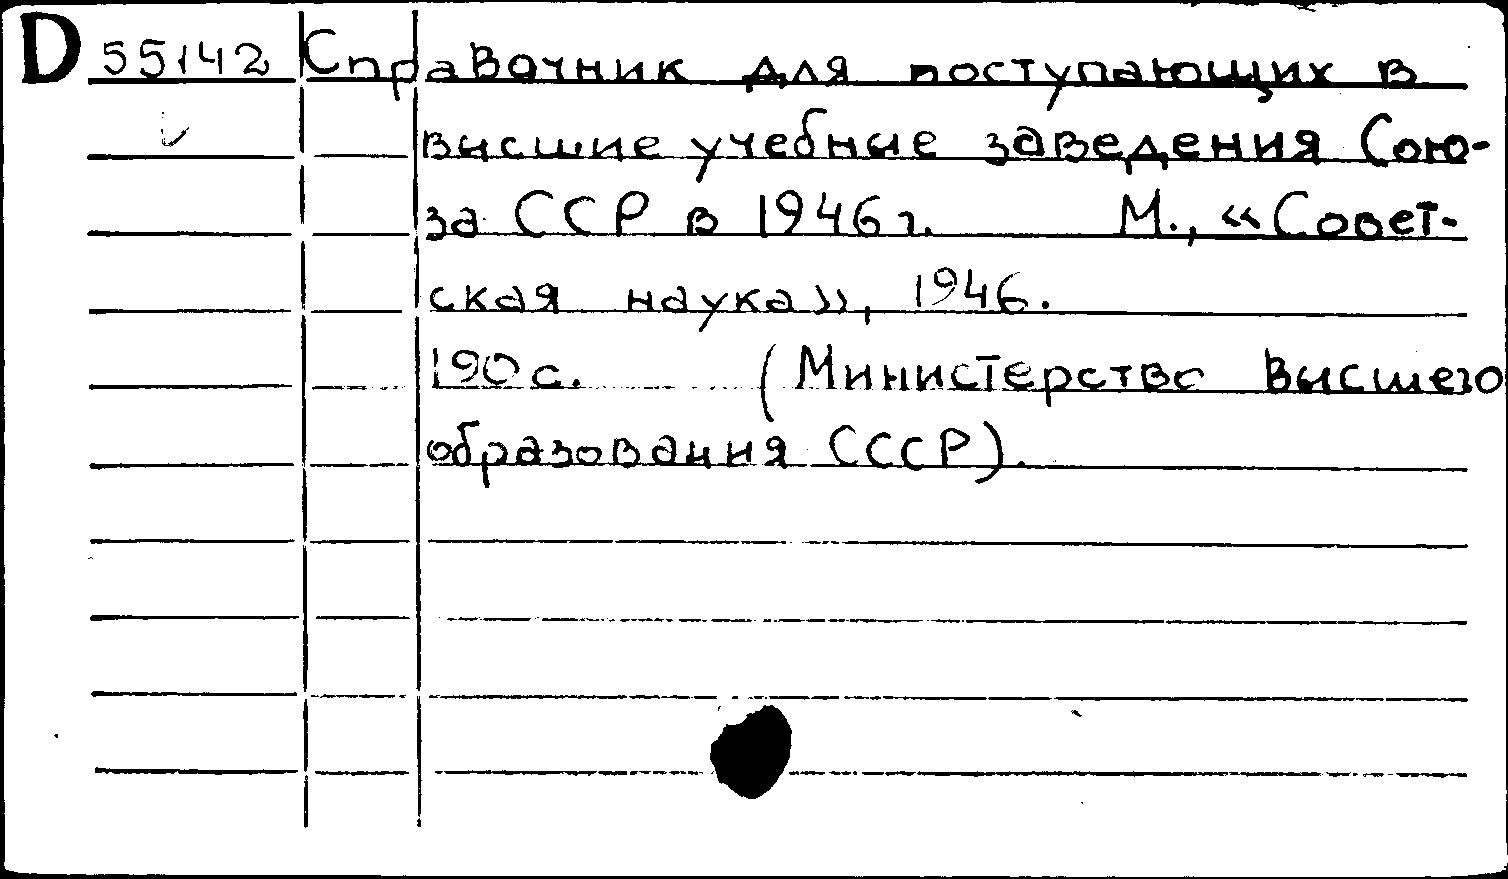 D 55142 Справочник для поступающих в
высшие учебные заведения Сою-
за ССР в 1946 г. М., «Совет-
ская наука», 1946.
190 с. (Министерство высшего
образования СССР).